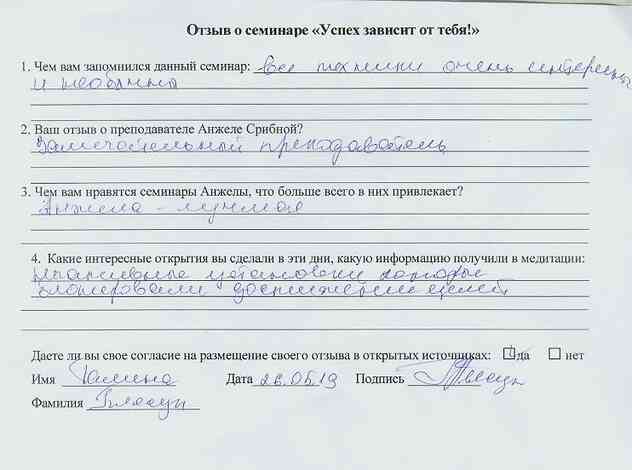 Отзыв о семинаре «Успех зависит от тебя!»
1. Чем вам запомнился данный семинар: все техники очень интересны
и необычны
2. Ваш отзыв о преподавателе Анжеле Срибной?
Замечательный преподаватель
3. Чем вам нравятся семинары Анжелы, что больше всего в них привлекает?
Анжела - лучшая
4. Какие интересные открытия вы сделали в эти дни, какую информацию получили в медитации:
негативные установки которые
блокировали достижение целей
Даете ли вы свое согласие на размещение своего отзыва в открытых источниках: да нет
Имя Галина Дата 26.05.19 Подпись
Фамилия